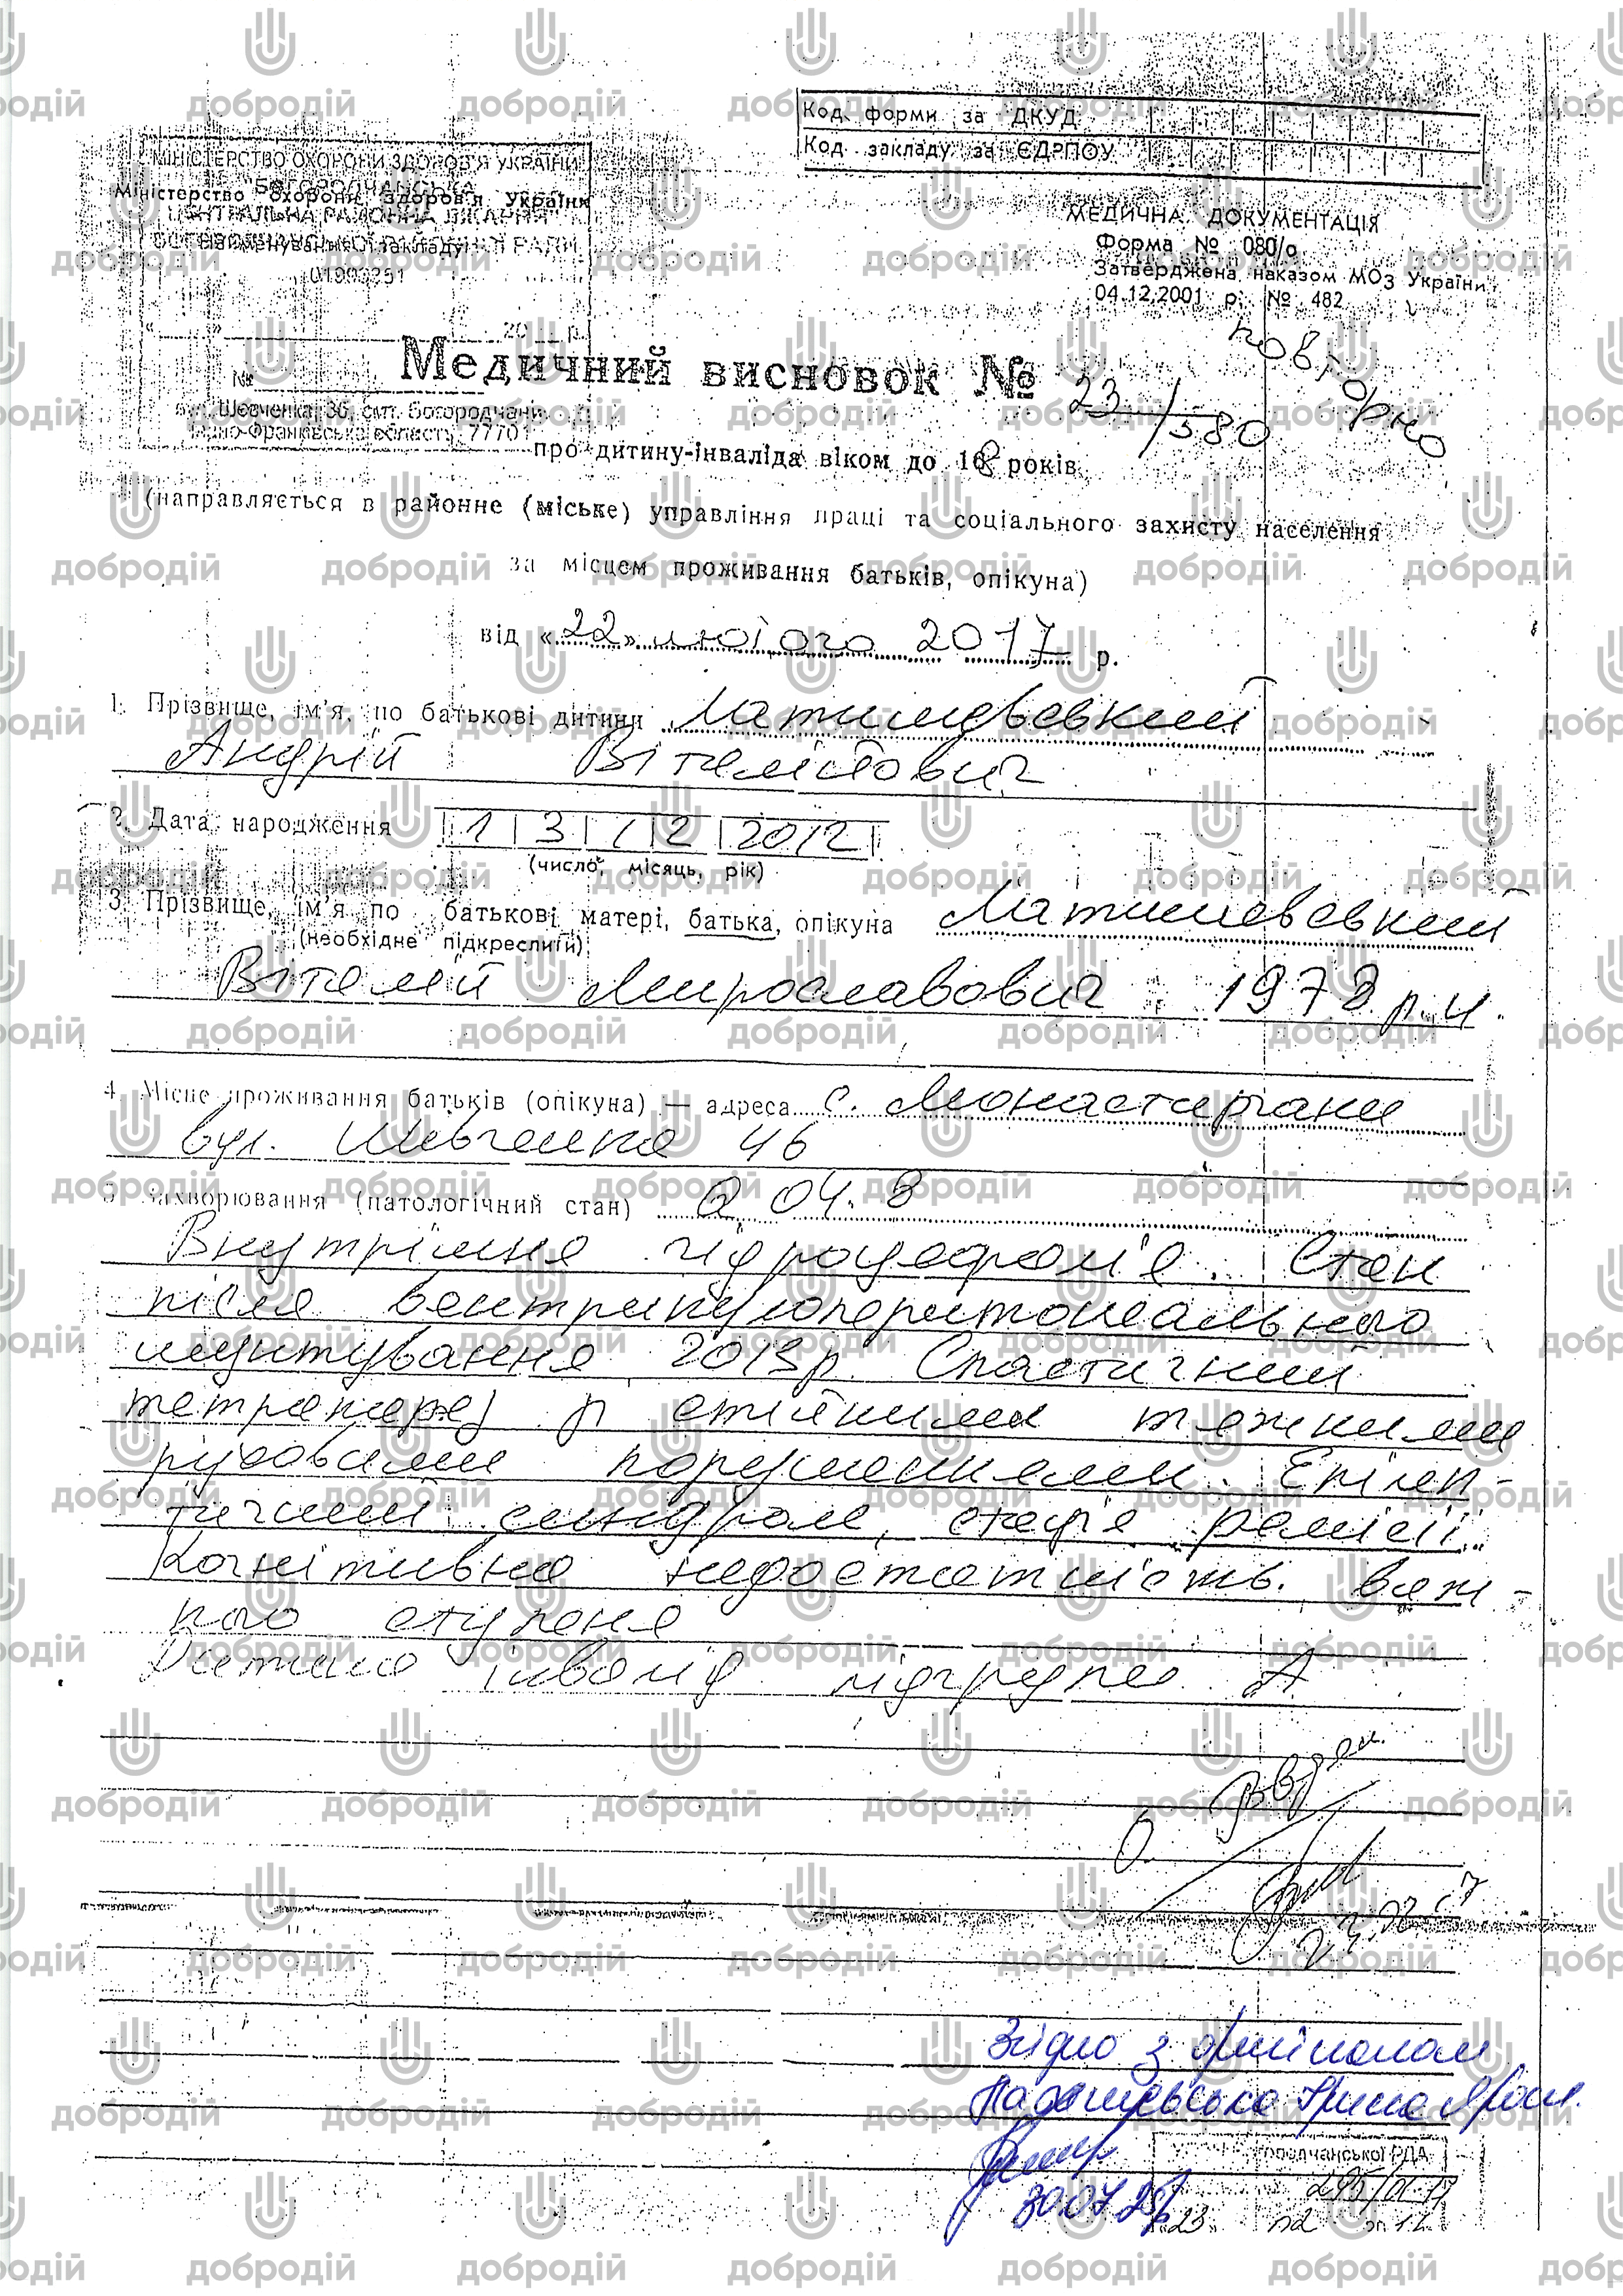 Код форми за ДКУД
Код закладу за ЄДРПОУ
МІНІСТЕРСТВО ОХОРОНИ ЗДОРОВ'Я УКРАЇНИ
БОГОРОДЧАНСЬКА
Міністерство охорони здоров'я України
ЦЕНТРАЛЬНА РАЙОННА ЛІКАРНЯ
Найменування закладу
01993251
МЕДИЧНА ДОКУМЕНТАЦІЯ
Форма № 080/о
Затверджена наказом МОЗ України
04.12.2001 р. № 482
20 р.
№
Медичний висновок № 23/580
повторно
вул. Шевченка, 36, смт. Богородчани
Івано-Франківська область, 77701
про дитину-інваліда віком до 18 років
(направляється в районне (міське) управління праці та соціального захисту населення
за місцем проживання батьків, опікуна)
від «22» лютого 2017 р.
1. Прізвище, ім'я, по батькові дитини
Андрій Віталійович
2. Дата народження 13 12 2012
(число, місяць, рік)
3. Прізвище, ім'я по батькові матері, батька, опікуна
(необхідне підкреслити)
Віталій Мирославович 1978 р.н.
4. Місце проживання батьків (опікуна) — адреса с. Монастирчани
вул. Шевченка 46
5. Захворювання (патологічний стан) Q 04.8
Внутрішня гідроцефалія. Стан
після вентрикулоперитонеального
шунтування 2013р. Спастичний
тетрапарез з стійкими тяжкими
руховими порушеннями. Епілеп-
тичний синдром, стадія ремісії.
Когнітивна недостатність важ-
кого ступеня
Дитина інвалід підгрупа А
Згідно з оригіналом
Ірина Яросл.
30.07.
городчанської РДА
295/01-17
23
добродій